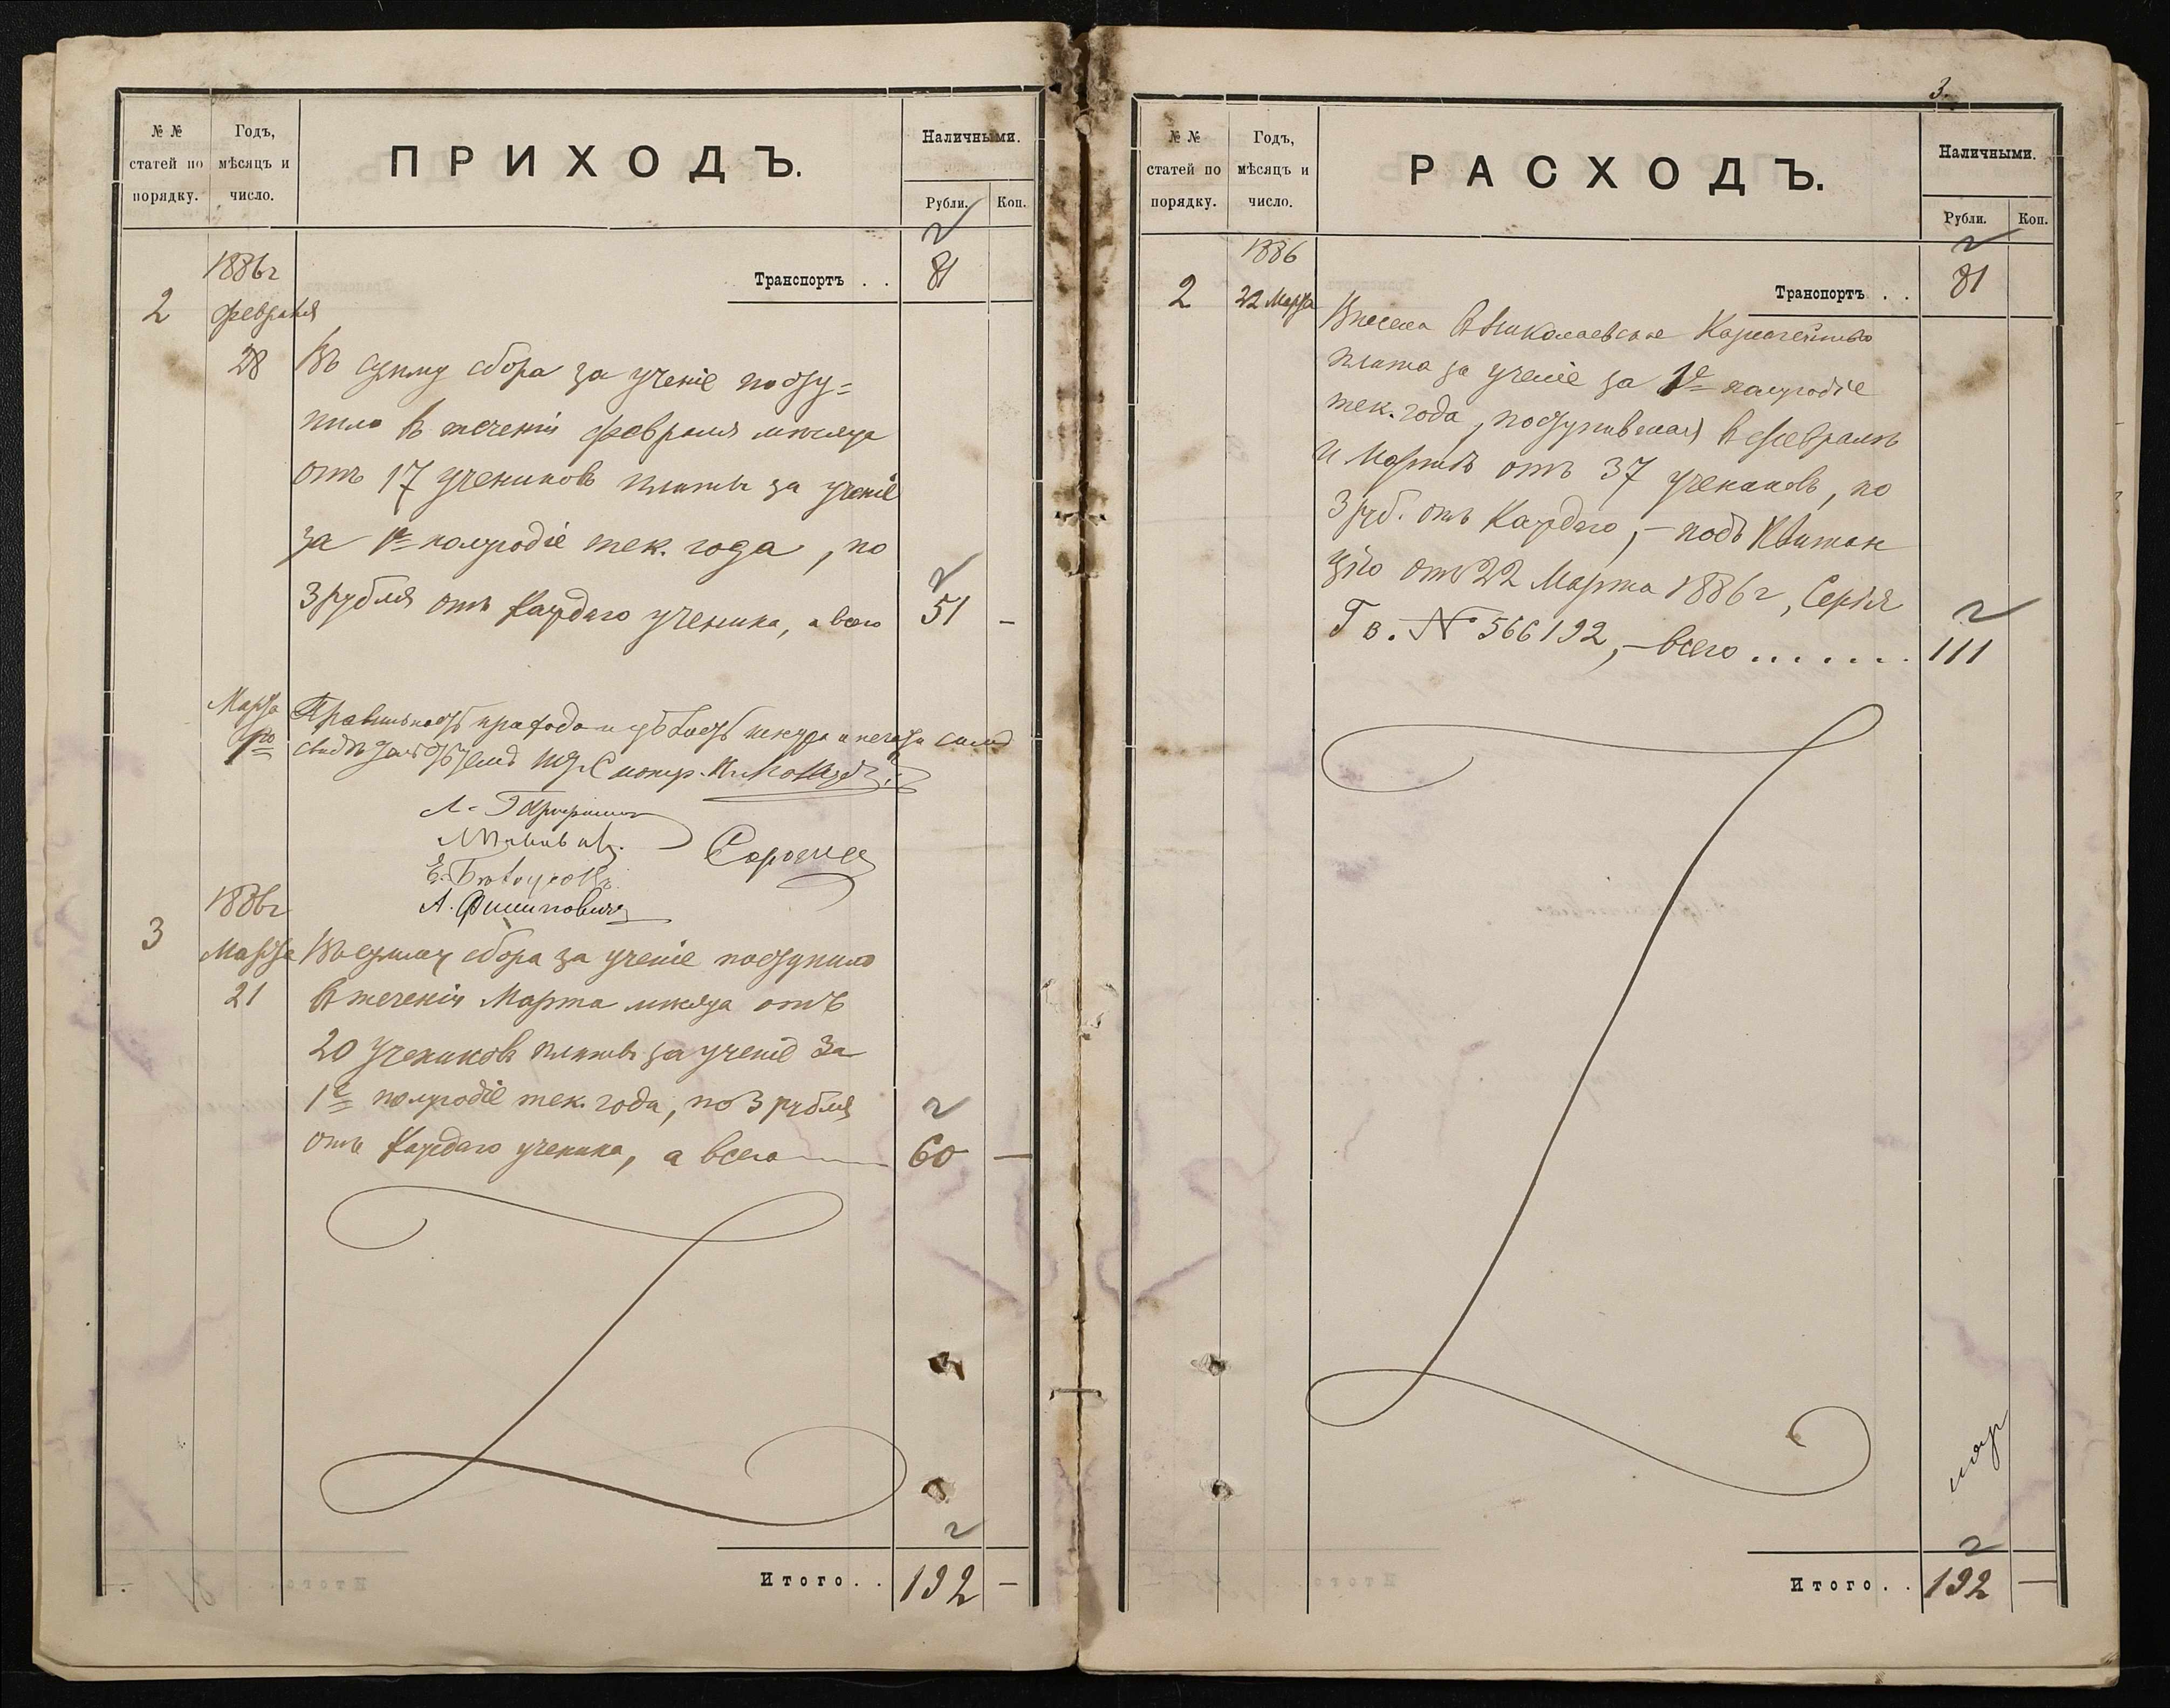 № №
статей по
порядку.
Годъ,
мѣсяцъ и
число.
ПРИХОДЪ.
Наличными.
Рубли.
Коп.
1886 г
Транспортъ . .
81
2
февраля
28
Въ сумму сбора за ученіе посту=
пило въ теченіи февраля мѣсяца
отъ 17 учениковъ платы за ученіе
за 1е полугодіе тек. года, по
3 рубля отъ каждаго ученика, а всего
51 -
Марта
1го
Правильность прихода и цѣлость шнура и печати симъ
свидѣтельствуемъ
Сорочи
А. Филиповичъ
3
1886 г
Марта
21
Въ сумму сбора за ученіе поступило
въ теченіи Марта мѣсяца отъ
20 учениковъ платы за ученіе за
1е полугодіе тек. года, по 3 рубля
отъ каждаго ученика, а всего
60 —
Итого. .
192 —
3.
№ №
статей по
порядку.
Годъ,
мѣсяцъ и
число.
РАСХОДЪ.
Наличными.
Рубли.
Коп.
1886
Транспортъ . .
81
2
22 Марта
Внесена въ Николаевское Казначейство
плата за ученіе за 1е полугодіе
тек. года, поступившая въ Февралѣ
и Мартѣ отъ 37 учениковъ, по
3 руб. отъ каждаго, – подъ Квитан
цію отъ 22 Марта 1886 г, Серія
Гв. № 566192, – всего . . . . . . .
111
Итого. .
192 —